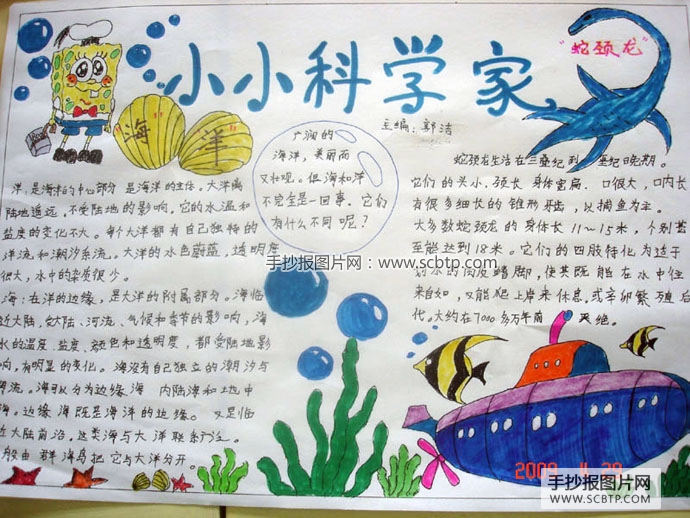 小小科学家
主编：郭洁
"蛇颈龙"
"海 洋"
广润的
海洋，美丽而
又壮观。但海和洋
不完全是一回事，它们
有什么不同呢？
洋，是海洋的中心部分 是海洋的主体。大洋离
陆地遥远，不受陆地的影响。它的水温和
盐度的变化不大。每个大洋都有自己独特的
洋流和潮汐系统。大洋的水色蔚蓝，透明度
很大，水中的杂质很少。
海：在洋的边缘，是大洋的附属部分。海临
近大陆，大陆、河流、气候和季节的影响，海
水的温度、盐度、颜色和透明度，都受陆地影
响，有明显的变化。海没有自己独立的潮汐与
海流。海可以分为边缘海 内陆海和土地中
海。边缘海既是海洋的边缘。又是临
近大陆前沿。这类海与大洋联系广泛。
般由群海岛把它与大洋分开。
蛇颈龙生活在三叠纪到 垩纪晚期。
它们的头小、颈长 身体宽扁、口很大，口内长
有很多细长的锥形牙齿，以捕鱼为主。
大多数蛇颈龙的身体长11～15米，个别甚
至能达到18米。它们的四肢特化为适于
划水的肉质鳍脚，使其既能在水中往
来自如，又能爬上岸来休息，或辛卵繁殖后
代。大约在7000多万年前 灭绝。
手抄报图片网：www.scbtp.com
2009 11 29
手抄报图片网
WWW.SCBTP.COM